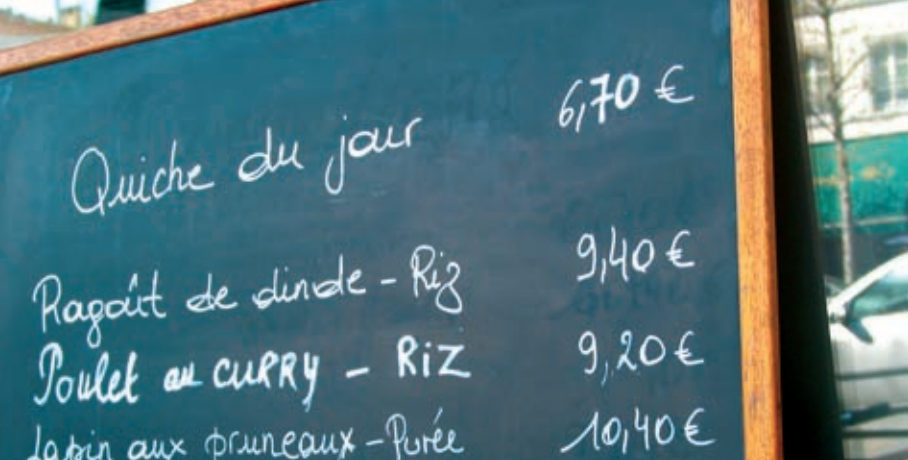 Quiche du jour 6,70 €
Ragoût de dinde - Riz 9,40 €
Poulet au CURRY - RiZ 9,20 €
Lapin aux pruneaux - Purée 10,40 €